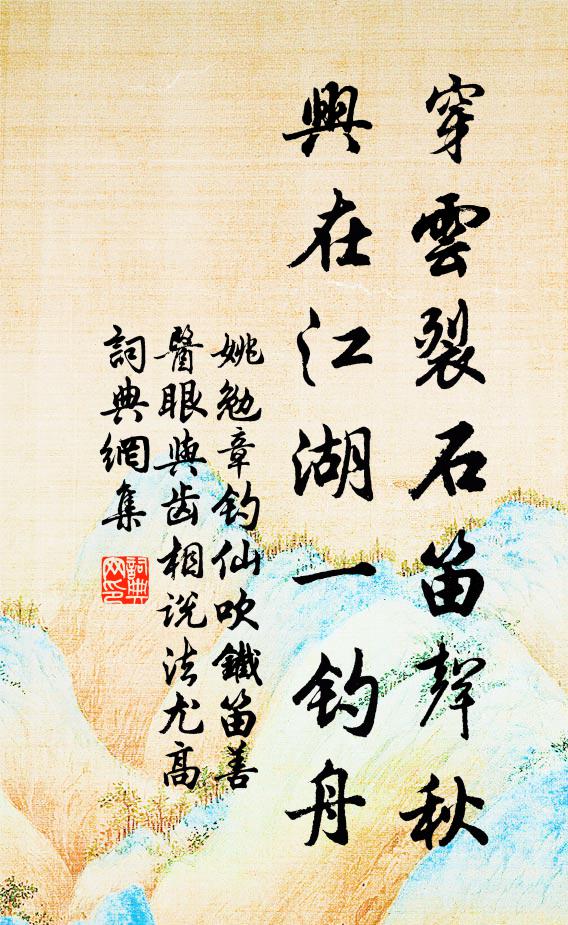 穿雲裂石笛聲秋
興在江湖一釣舟
姚勉章釣仙吹鐵笛善
醫眼與齿相说法尤高
詞典網集
詞典
网印